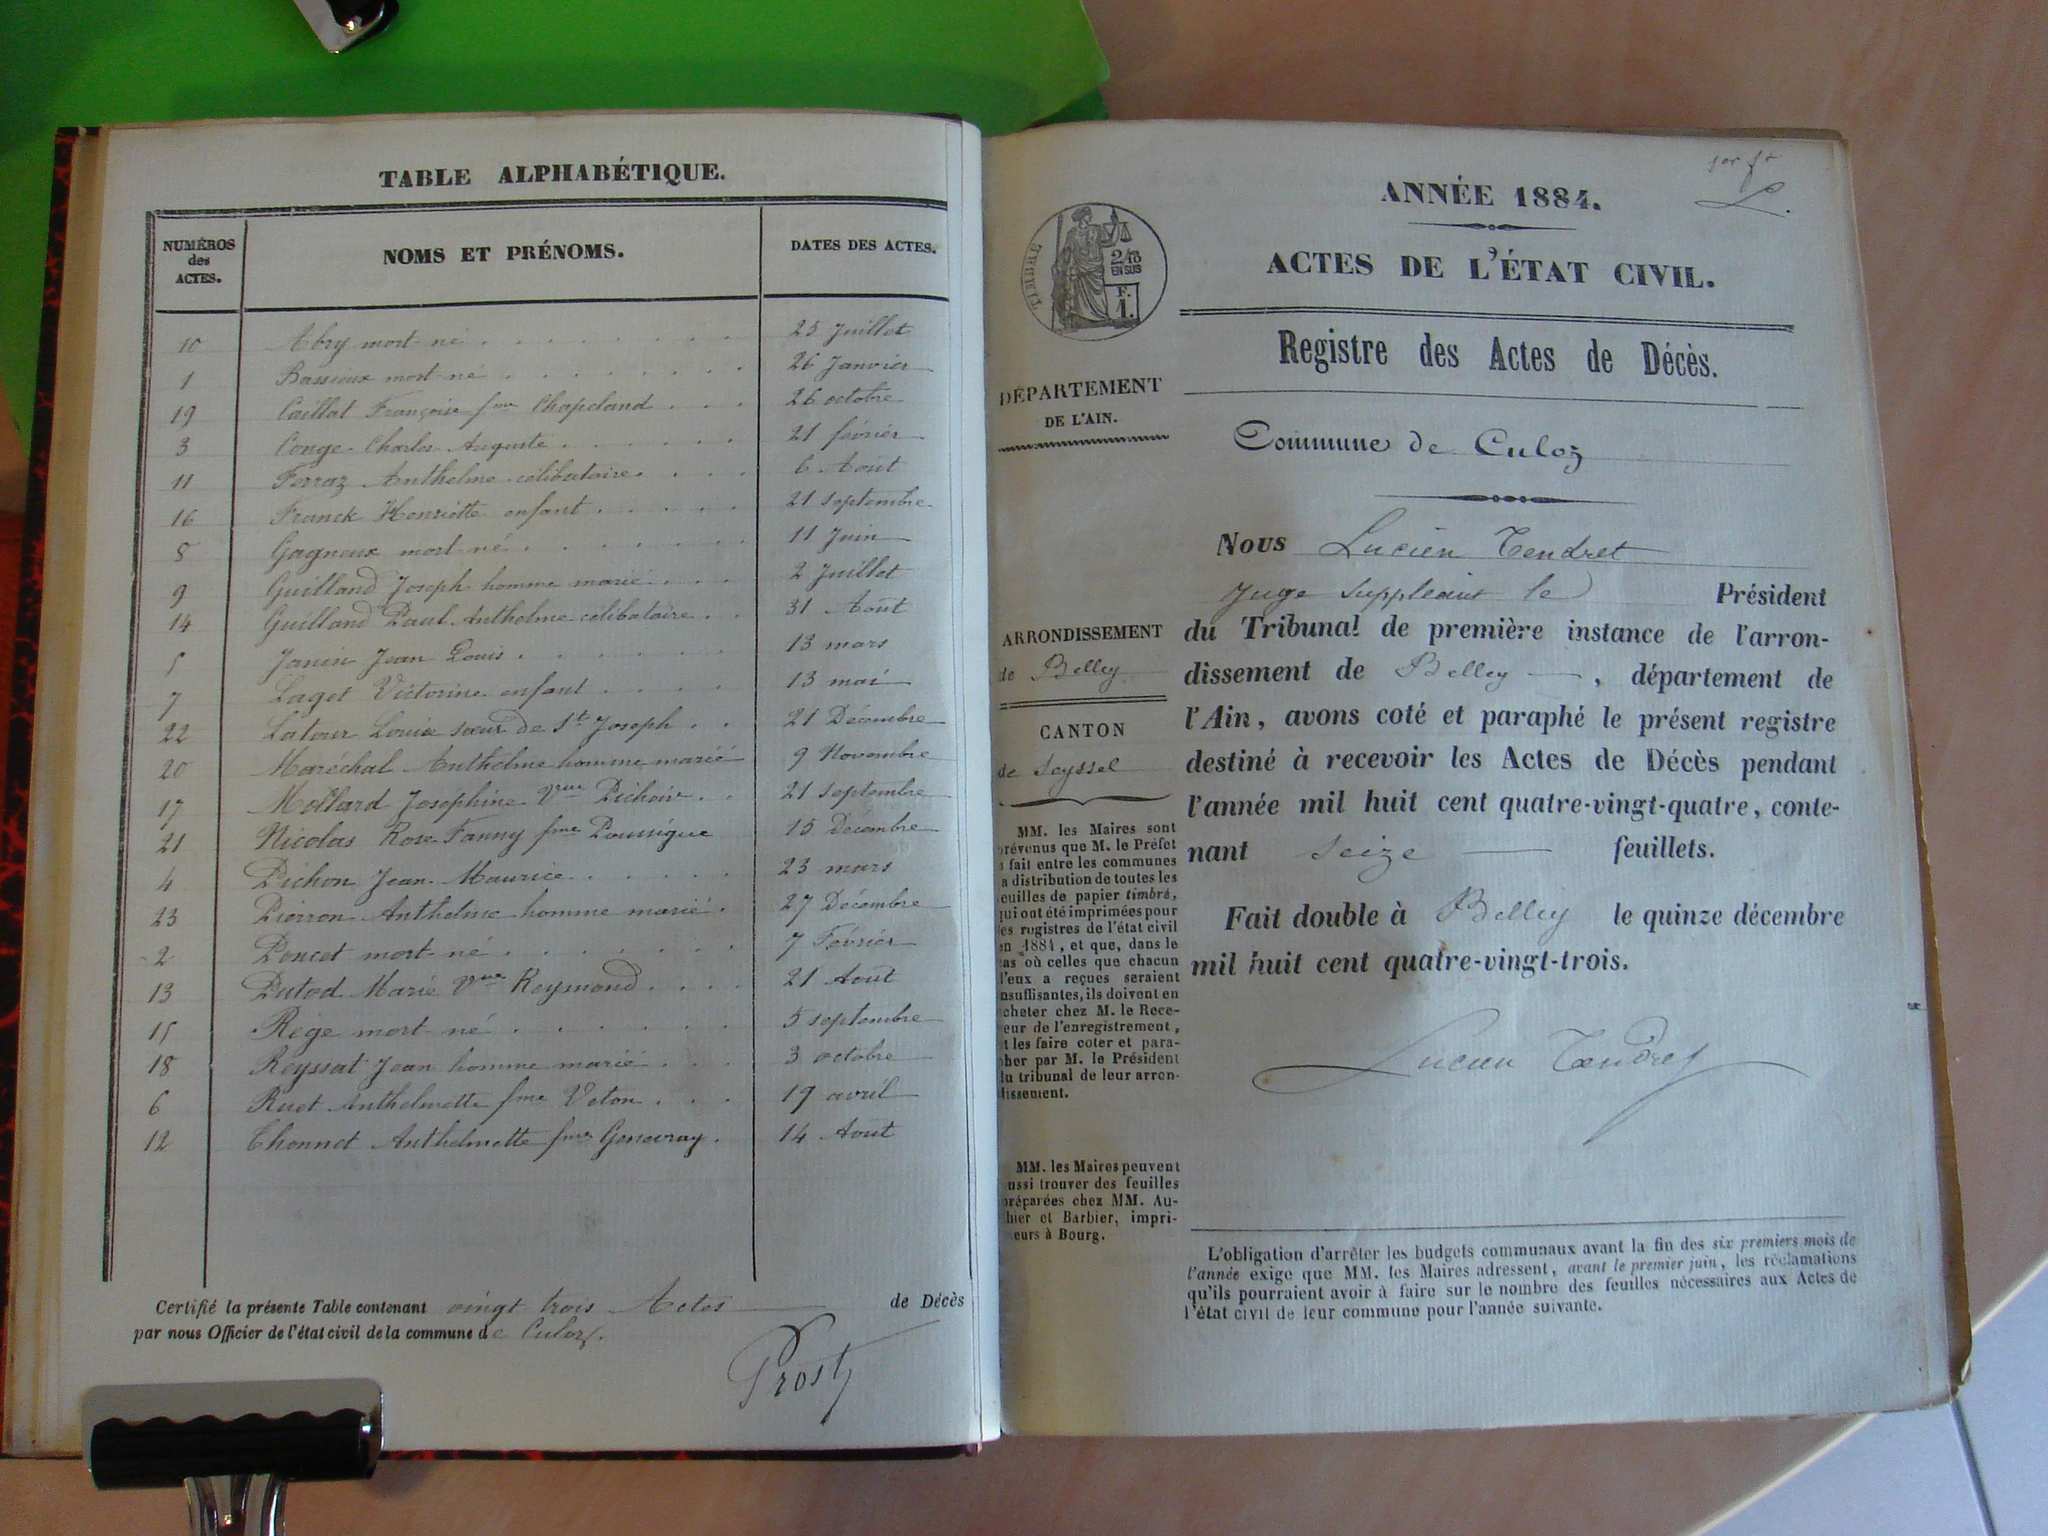 TABLE ALPHABÉTIQUE.
NUMÉROS des ACTES. NOMS ET PRÉNOMS. DATES DES ACTES.
10 Abry mort-né 25 Juillet
1 Bassieux mort-né 26 Janvier
19 Caillat Françoise fme Chapeland 26 octobre
3 Conge Charles Auguste 21 février
11 Ferraz Anthelme célibataire 6 Août
16 Franck Henriette enfant 21 septembre
8 Gagneux mort-né 11 Juin
9 Guilland Joseph homme marié 2 Juillet
14 Guilland Paul Anthelme célibataire 31 Août
5 Janin Jean Louis 13 mars
7 Laget Victorine enfant 13 mai
22 Latour Louise sœur de St Joseph 21 Décembre
20 Maréchal Anthelme homme marié 9 Novembre
17 Mollard Joséphine Vve 21 septembre
21 Nicolas Rose Fanny fme 15 Décembre
4 Pichon Jean Maurice 23 mars
23 Pierron Anthelme homme marié 27 Décembre
2 Poncet mort-né 7 Février
13 Putod Marie Vve Reymond 21 Août
15 Rège mort-né 5 septembre
18 Reyssat Jean homme marié 3 octobre
6 Ruet Anthelmette fme Veton 19 avril
12 Thonnet Anthelmette fme Genevray 14 Août
Certifié la présente Table contenant vingt trois Actes de Décès
par nous Officier de l'état civil de la commune de Culoz.
Prost
ANNÉE 1884.
ACTES DE L'ÉTAT CIVIL.
TIMBRE
2/10
EN SUS
F.
1.
Registre des Actes de Décès.
DÉPARTEMENT
DE L'AIN.
Commune de Culoz
Nous Lucien Tendret
Juge suppléant le Président
du Tribunal de première instance de l'arron-
dissement de Belley, département de
l'Ain, avons coté et paraphé le présent registre
destiné à recevoir les Actes de Décès pendant
l'année mil huit cent quatre-vingt-quatre, conte-
nant seize feuillets.
Fait double à Belley le quinze décembre
mil huit cent quatre-vingt-trois.
Lucien Tendret
ARRONDISSEMENT
de Belley
CANTON
de Seyssel
MM. les Maires sont
prévenus que M. le Préfet
a fait entre les communes
la distribution de toutes les
feuilles de papier timbré,
qui ont été imprimées pour
les registres de l'état civil
en 1884, et que, dans le
cas où celles que chacun
d'eux a reçues seraient
insuffisantes, ils doivent en
acheter chez M. le Rece-
veur de l'enregistrement,
et les faire coter et para-
pher par M. le Président
du tribunal de leur arron-
dissement.
MM. les Maires peuvent
aussi trouver des feuilles
préparées chez MM. Au-
thier et Barbier, impri-
meurs à Bourg.
L'obligation d'arrêter les budgets communaux avant la fin des six premiers mois de
l'année exige que MM. les Maires adressent, avant le premier juin, les réclamations
qu'ils pourraient avoir à faire sur le nombre des feuilles nécessaires aux Actes de
l'état civil de leur commune pour l'année suivante.